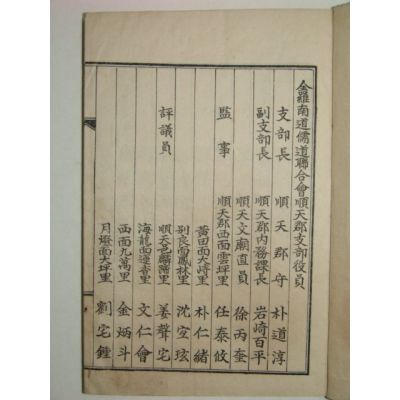 全羅南道儒道聯合會順天郡支部役員
支部長 順天郡守 朴道淳
副支部長 順天郡內務課長 岩崎百平
順天文廟直員 徐丙奎
監事 順天郡西面雲坪里 任泰攸
黃田面大峙里 朴仁緒
評議員 別良面鳳林里 沈宜玹
順天邑 姜聲宅
海龍面 里 文仁會
西面九萬里 金炳斗
月燈面大坪里 劉宅鍾